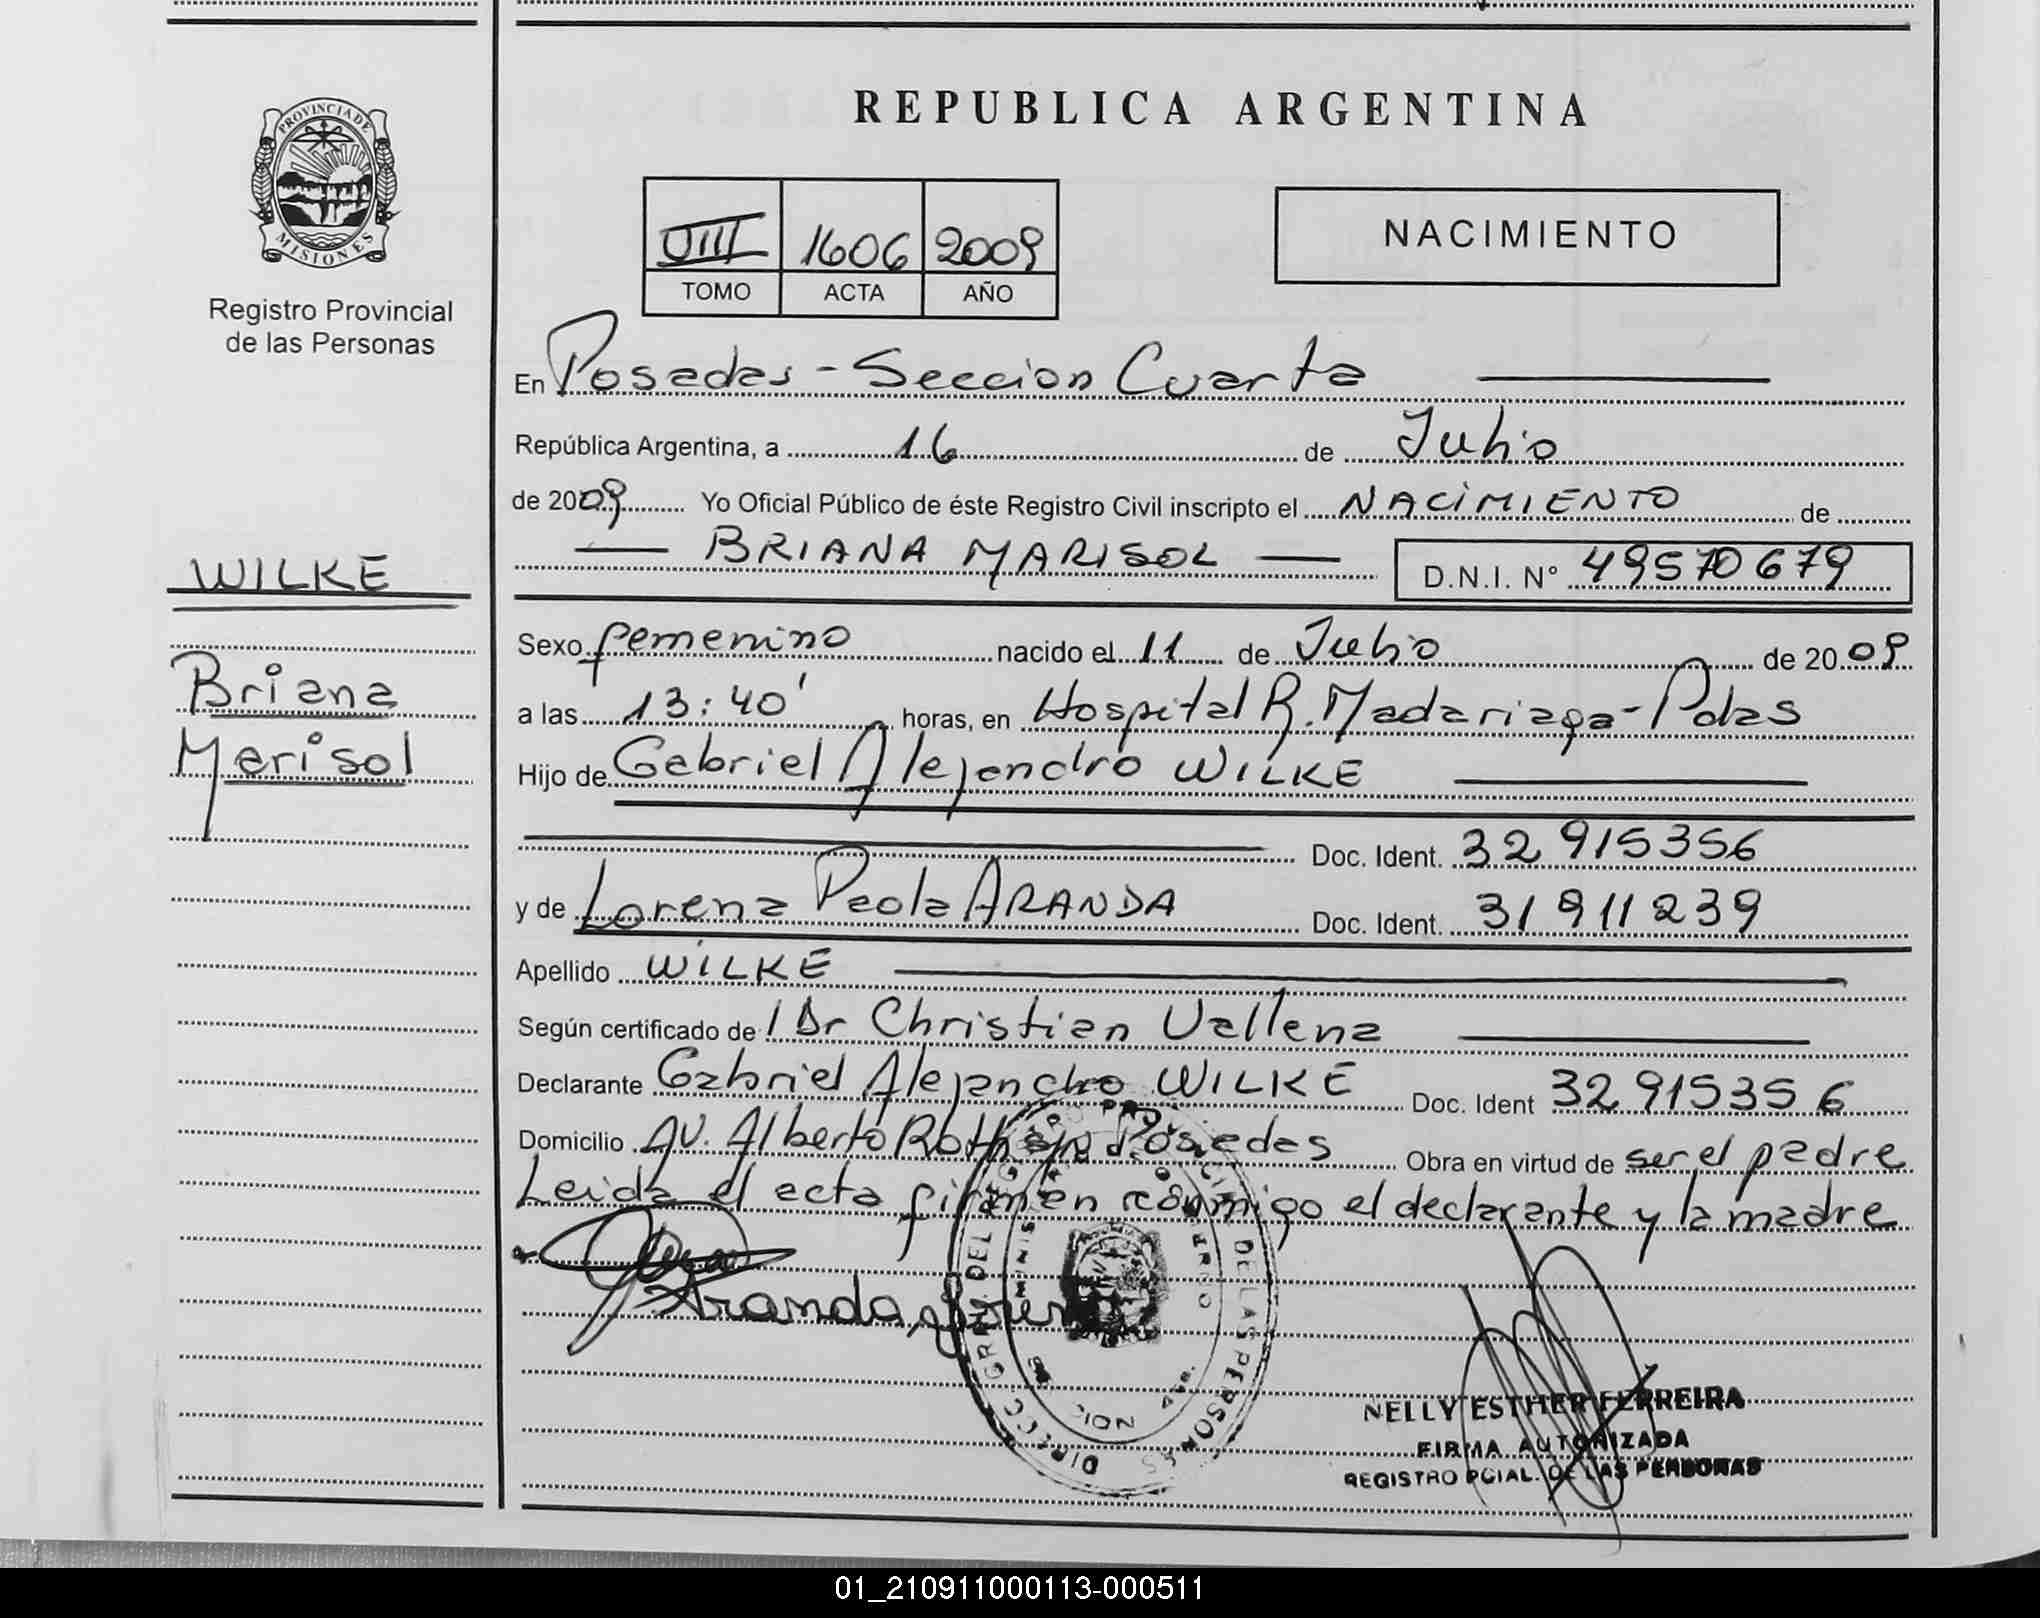 REPUBLICA ARGENTINA
PROVINCIA DE
MISIONES
Registro Provincial
de las Personas
VIII 1606 2009
TOMO ACTA AÑO
NACIMIENTO
En Posadas - Seccion Cuarta
República Argentina, a 16 de Julio
de 2009 Yo Oficial Público de éste Registro Civil inscripto el NACIMIENTO de
BRIANA MARISOL D.N.I. Nº 49570679
WILKE
Briana
Marisol
Sexo femenino nacido el 11 de Julio de 2009
a las 13:40' horas, en Hospital R. Madariaga - Pdas
Hijo de Gabriel Alejandro WILKE
Doc. Ident. 32915356
y de Lorena Paola ARANDA Doc. Ident. 31911239
Apellido WILKE
Según certificado de 1 Dr Christian Vallena
Declarante Gabriel Alejandro WILKE Doc. Ident 32915356
Domicilio AV. Alberto Roth s/n Posadas Obra en virtud de ser el padre
Leida el acta firman conmigo el declarante y la madre
Aranda, Lorena
DIRECC. GRAL. DEL REGISTRO DE LAS PERSONAS
NELLY ESTHER FERREIRA
FIRMA AUTORIZADA
REGISTRO PCIAL. DE LAS PERSONAS
01_210911000113-000511